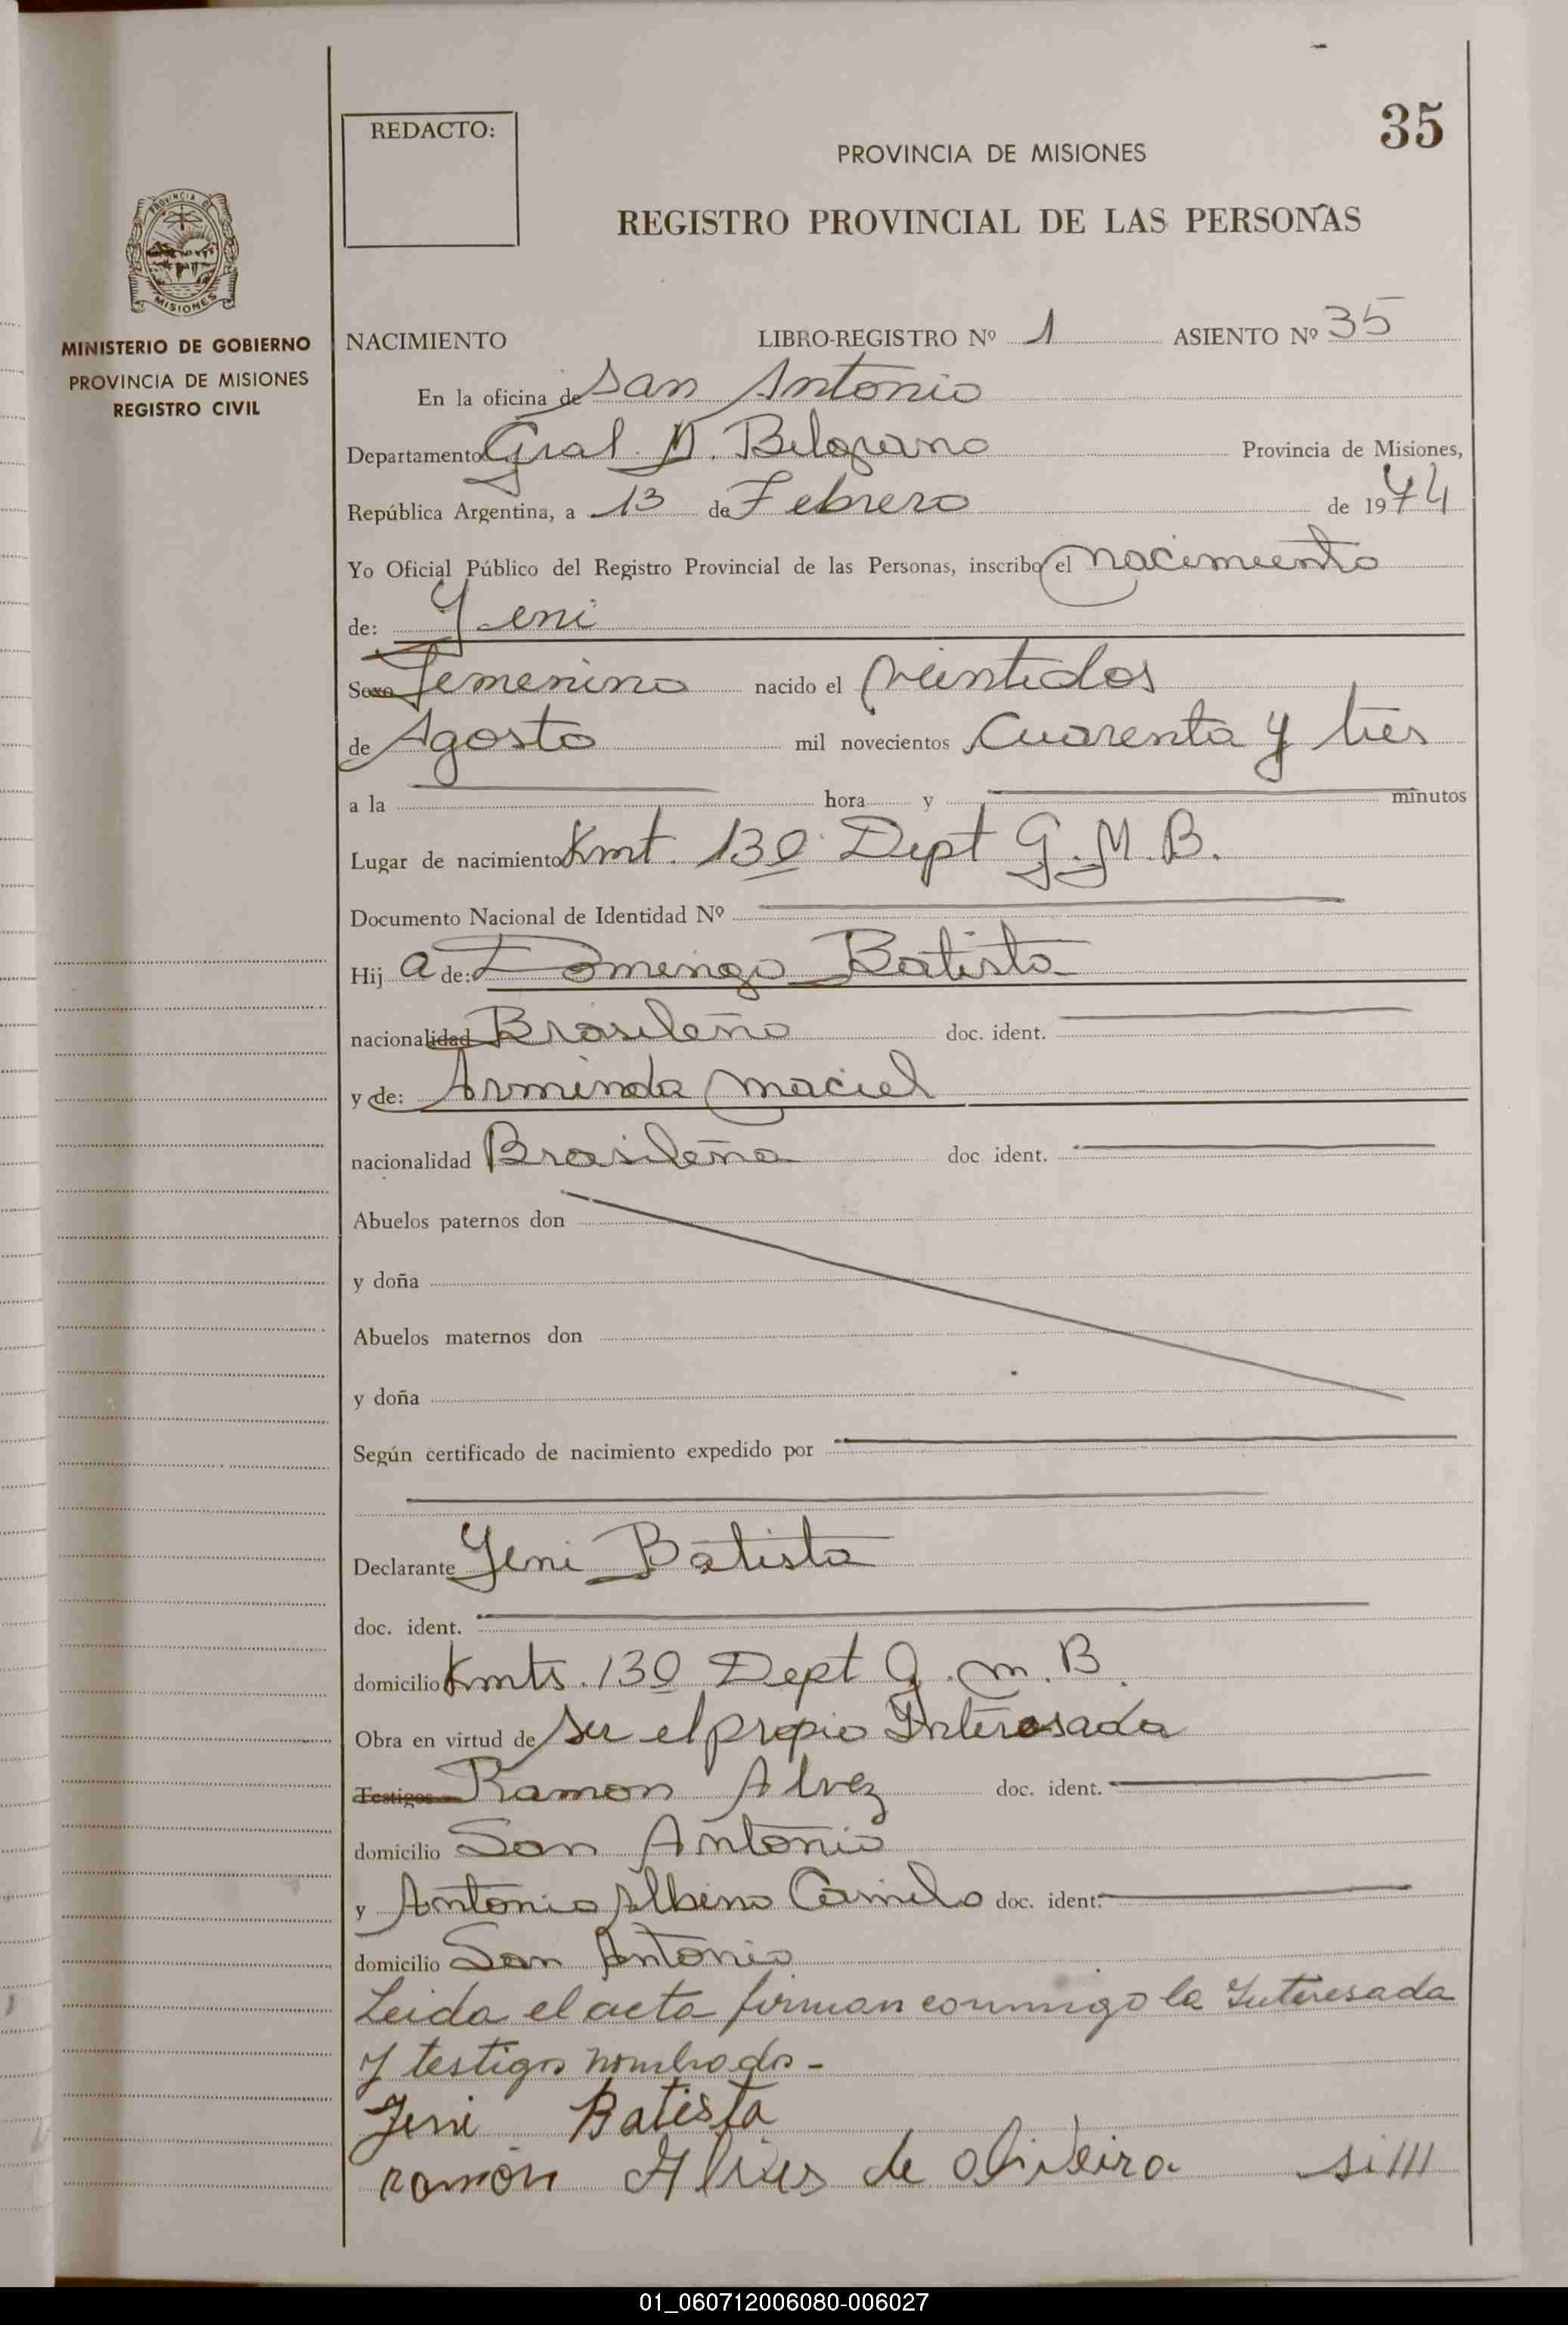 35
REDACTO:
PROVINCIA DE MISIONES
REGISTRO PROVINCIAL DE LAS PERSONAS
PROVINCIA DE
MISIONES
MINISTERIO DE GOBIERNO
PROVINCIA DE MISIONES
REGISTRO CIVIL
NACIMIENTO LIBRO-REGISTRO Nº 1 ASIENTO Nº 35
En la oficina de San Antonio
Departamento Gral M. Belgrano Provincia de Misiones,
República Argentina, a 13 de Febrero de 1974
Yo Oficial Público del Registro Provincial de las Personas, inscribo el nacimiento
de: Yeni
Sexo Femenino nacido el veintidos
de Agosto mil novecientos cuarenta y tres
a la hora y minutos
Lugar de nacimiento Kmt. 130 Dept G.M.B.
Documento Nacional de Identidad Nº
Hij a de: Domingo Batista
nacionalidad Brasileño doc. ident.
y de: Arminda Maciel
nacionalidad Brasileña doc ident.
Abuelos paternos don
y doña
Abuelos maternos don
y doña
Según certificado de nacimiento expedido por
Declarante Yeni Batista
doc. ident.
domicilio Kmts. 130 Dept G.M.B.
Obra en virtud de ser el propio Interesada
Testigos Ramon Alvez doc. ident.
domicilio San Antonio
y Antonio Albino Camilo doc. ident.
domicilio San Antonio
Leida el acta firman conmigo la Interesada
y testigos nombrados-
Jeni Batista
ramón Alves de oliveira si///
01_060712006080-006027